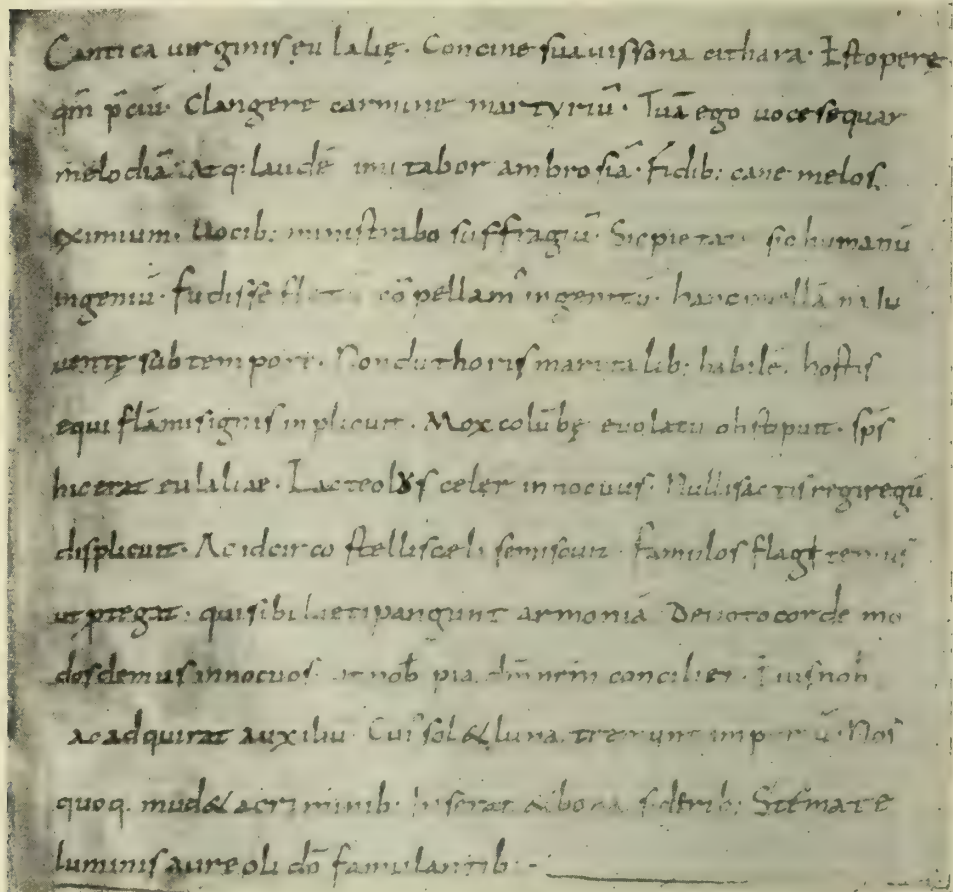 Cantica uirginis eulalię. Concine suauissona cithara. Est operę
qm̄ p̄ciū. Clangere carmine martyriū. Tuā ego uoce sequar
melodiā. Atq: laudē imitabor ambrosiā. Fidib: cane melos
eximium. Uocib: ministrabo suffragiū. Sic pietatē sic humanū
ingeniū. fudisse fletū cōpellam̄ ingenitū. hanc puellā nā iu
uentę sub tempore. Nondū thoris maritalib: habilē. hostis
equi flāmis ignis inplicuit. Mox colūbę euolatu obstipuit. sp̄s
hic erat eulaliae. Lacteolus celer innocuus. Nullis actis regi regū
displicuit. Ac idcirco stellis cæli semiscuit. Famulos flagitemus
ut ptegat. qui sibi lęti pangunt armoniā. Deuoto corde mo
dos demus innocuos. ut nob̄ pia. dm̄ nr̄m conciliet. Eius nob̄
ac adquirat auxiliū. Cui' sol & luna tremunt imperiū. Nos
quoq. mund& a criminib: Inserat & bona siderib: Stēmate
luminis aureoli dō famulantib:-